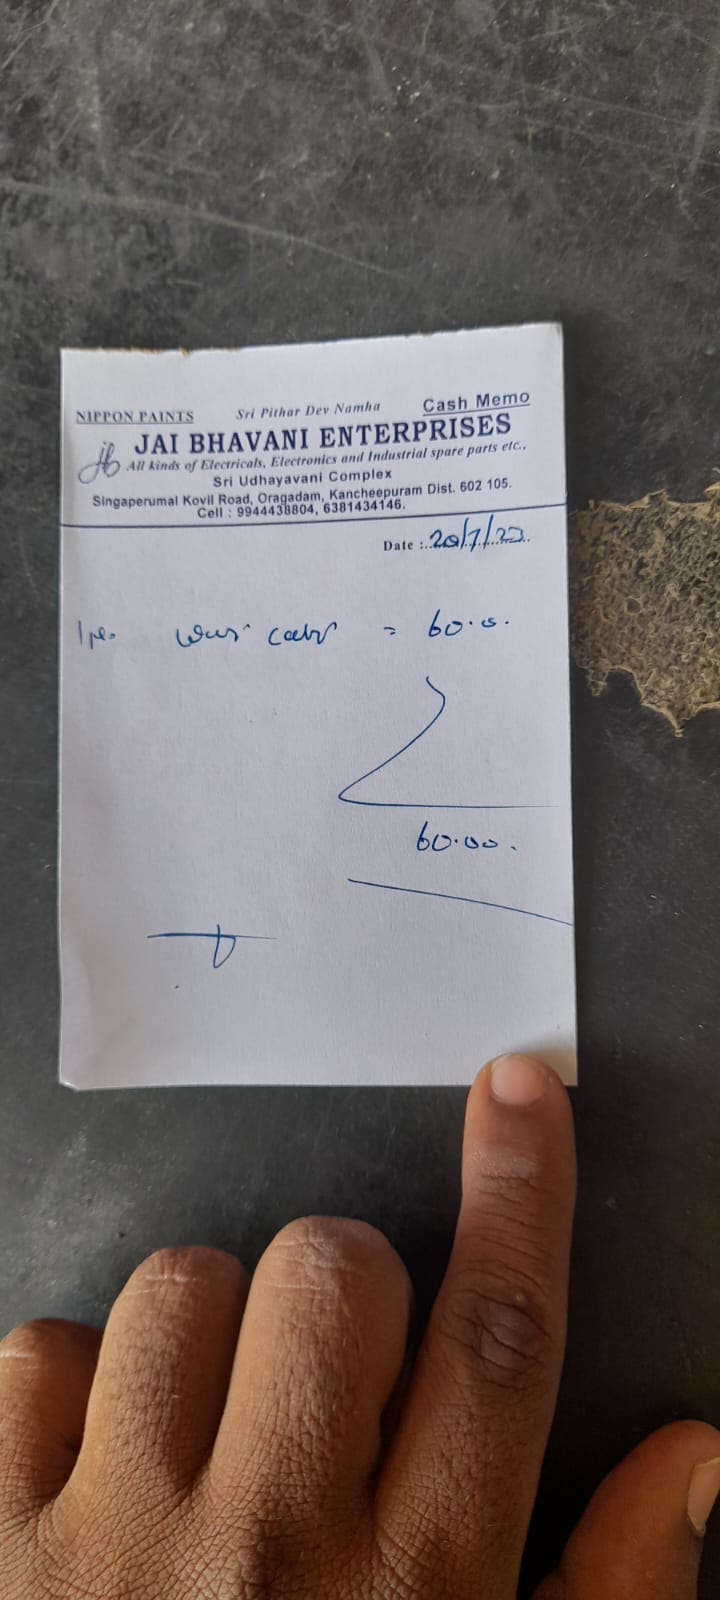 NIPPON PAINTS Sri Pithar Dev Namha Cash Memo
jb JAI BHAVANI ENTERPRISES
All kinds of Electricals, Electronics and Industrial spare parts etc.,
Sri Udhayavani Complex
Singaperumal Kovil Road, Oragadam, Kancheepuram Dist. 602 105.
Cell : 9944438804, 6381434146.
Date : 20/7/23
= 60.0.
60.00.